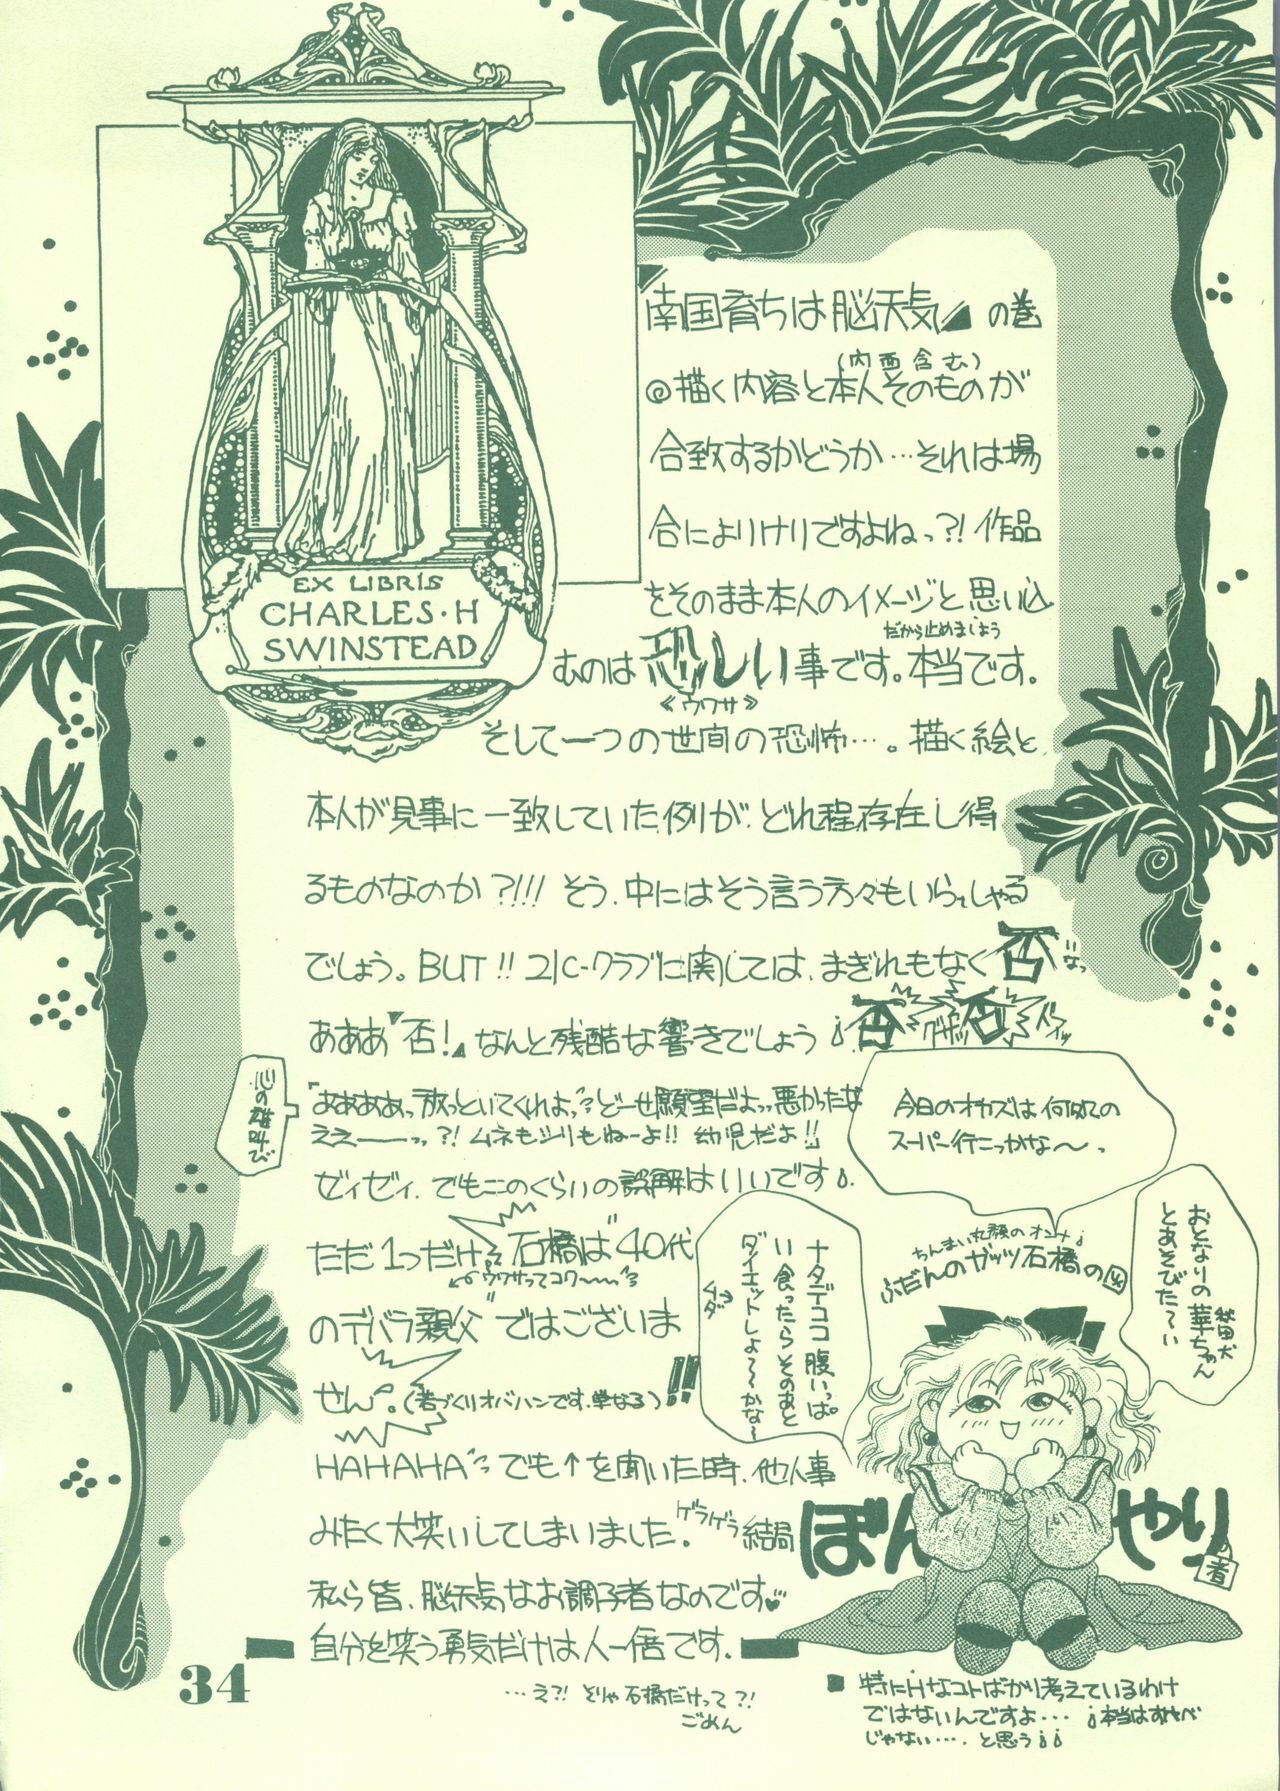 EX LIBRIS
CHARLES·H
SWINSTEAD
『南国育ちは脳天気』の巻
(内面含む)
◎描く内容と本人そのものが
合致するかどうか…それは場
合によりけりですよねっ?!作品
をそのまま本人のイメージと思い込
だから止めましょう
むのは恐しい事です。本当です。
《ウワサ》
そして一つの世間の恐怖…。描く絵と
本人が見事に一致していた例が、どれ程存在し得
るものなのか?!!! そう、中にはそう言う方々もいらっしゃる
でしょう。BUT!! ユIC-クラブに関しては、まぎれもなく否なっ
否 グサッ 否
あああ『否!』なんと残酷な響きでしょう
心の雄叫び
『ああああっ放っといてくれよっ?どーせ願望だよっ悪かったな
ええーーっ?!ムネもシリもねーよ!!幼児だよ!!
ゼィゼィ、でもこのくらいの誤解はいいです
ただ1つだけ、石橋は"40代
ウワサってコワ〜〜
のデバラ親父"ではございま
せん。(若づくりオバハンです、単なる)!!
HAHAHA でも↑を聞いた時、他人事
みたく大笑いしてしまいました。ゲラゲラ 結局
私ら皆、脳天気なお調子者なのです♥
自分を笑う勇気だけは人一倍です。
…え?! そりゃ石橋だけって?!
ごめん
今日のオカズは何処の
スーパー行こっかな〜っ
おとなりの華ちゃん
秋田犬
とあそびた〜い
ナタデココ腹いっぱ
い食ったらそのあと
ダイエットしよ〜〜かな〜
ムダ→
ちんまい丸顔のオンナ
ふだんのガッツ石橋の図
ぼんやり
の者
■特にHなコトばかり考えているわけ
ではないんですよ… 本当はすけべ
じゃない…、と思う
34